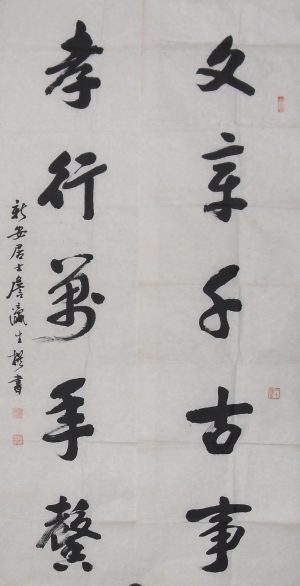 文章千古事
孝行萬年馨
新安居士詹瀛生書